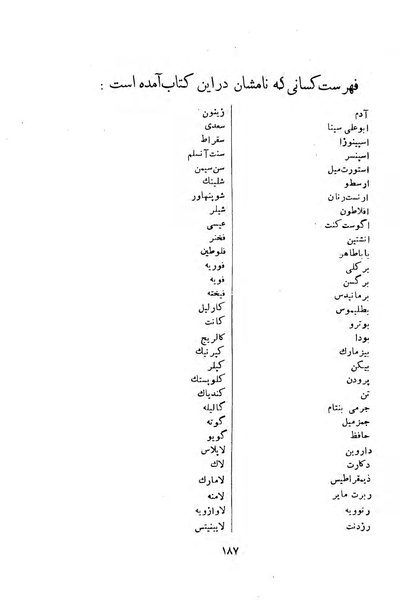 فهرست کسانی که نامشان در این کتاب آمده است :
آدم
ابوعلی سینا
اسپینوزا
اسپنسر
استورت میل
ارسطو
ارنست رنان
افلاطون
اگوست کنت
انشتین
باباطاهر
برکلی
برگسن
برمانیدس
بطلیموس
بوترو
بودا
بیزمارك
بیکن
پرودن
تن
جرمی بنتام
جمزمیل
حافظ
داروین
دکارت
ذیمقراطیس
ربرت مایر
رنوویه
رژدنت
زینون
سعدی
سقراط
سنت آنسلم
سن سیمن
شلینك
شوپنهاور
شیلر
عیسی
فخنر
فلوطین
فوریه
فویه
فیخته
کارلیل
کانت
کالریج
کپرنیك
کپلر
کلوپستك
کندیاك
گالیله
گوته
گویو
لاپلاس
لاك
لامارك
لامنه
لاوازویه
لایبنیتس
۱۸۷